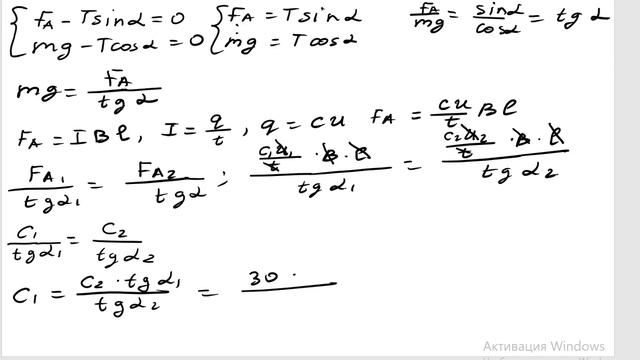 { F_A − T sin α = 0 { F_A = T sin α F_A/mg = sin α/cos α = tg α
{ mg − T cos α = 0 { mg = T cos α
mg = F_A/tg α
F_A = I B l, I = q/t, q = cu F_A = cu/t B l
F_A1/tg α_1 = F_A2/tg α ; (c_1 u_1/t · B · l)/tg α_1 = (c_2 u_2/t · B · l)/tg α_2
C_1/tg α_1 = C_2/tg α_2
C_1 = C_2 · tg α_1/tg α_2 = 30 ·
Активация Windows